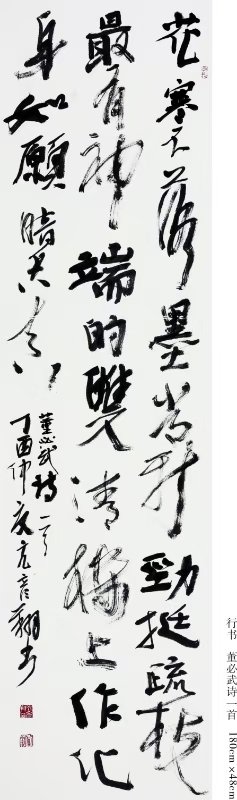 花寒不落墨常新劲挺疏枝
最有神端的雙清標上作化
身如願暗香
董必武詩一首
丁酉仲夏翔书
行书 董必武诗一首 180cm×48cm